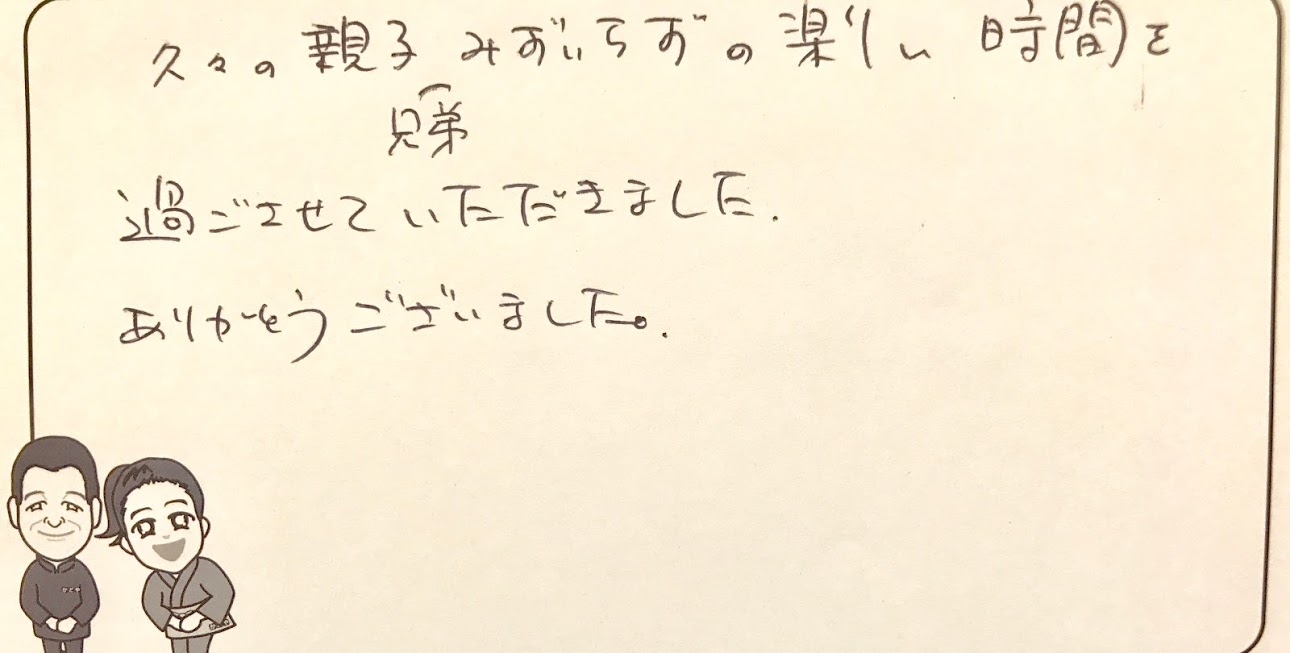 久々の親子みずいらずの楽しい時間を
兄弟
過ごさせていただきました.
ありがそうございました。.